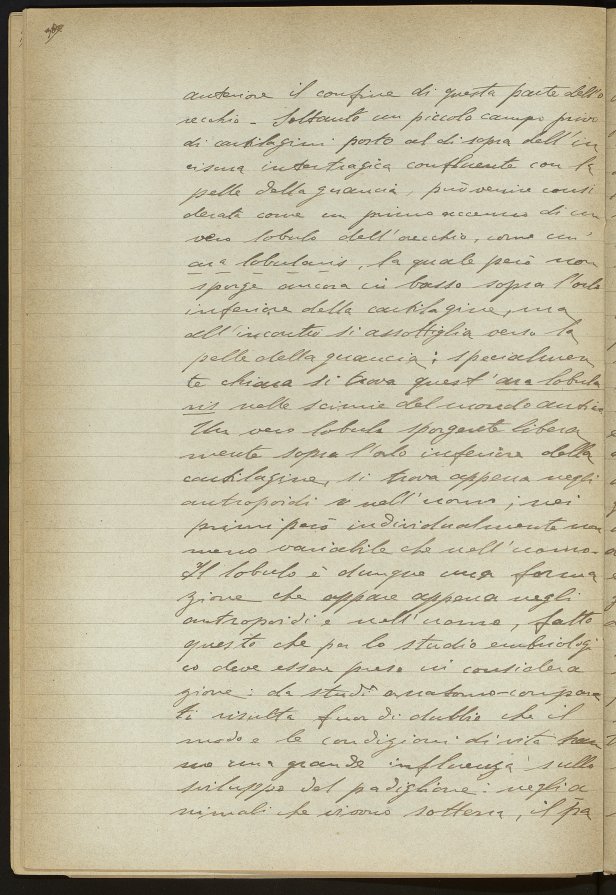 anteriore il confine di questa parte dell'o
recchio - Soltanto un piccolo campo privo
di cartilagini posto al di sopra dell'in
cisura intertragica confluente con la
pelle della guancia, può venire consi
derata come un primo accenno di un
vero lobulo dell'orecchio, come un'
area lobularis, la quale però non
sporge ancora in basso sopra l'orlo
inferiore della cartilagine, ma
all'incontro si assottiglia verso la
pelle della guancia; specialmen
te chiara si trova quest'area lobula
ris nelle scimie del mondo antico
Un vero lobulo sporgente libera
mente sopra l'orlo inferiore della
cartilagine, si trova appena negli
antropoidi e nell'uomo; nei
primi però individualmente non
meno variabile che nell'uomo.
Il lobulo è dunque una forma
zione che appare appena negli
antropoidi e nell'uomo, fatto
questo che per lo studio embriologi
co deve essere preso in considera
zione: da studi anatomo-compara
ti risulta fuor di dubbio che il
modo e le condizioni di vita han
no una grande influenza sullo
sviluppo del padiglione: negli a
nimali che vivono sotterra, il pa